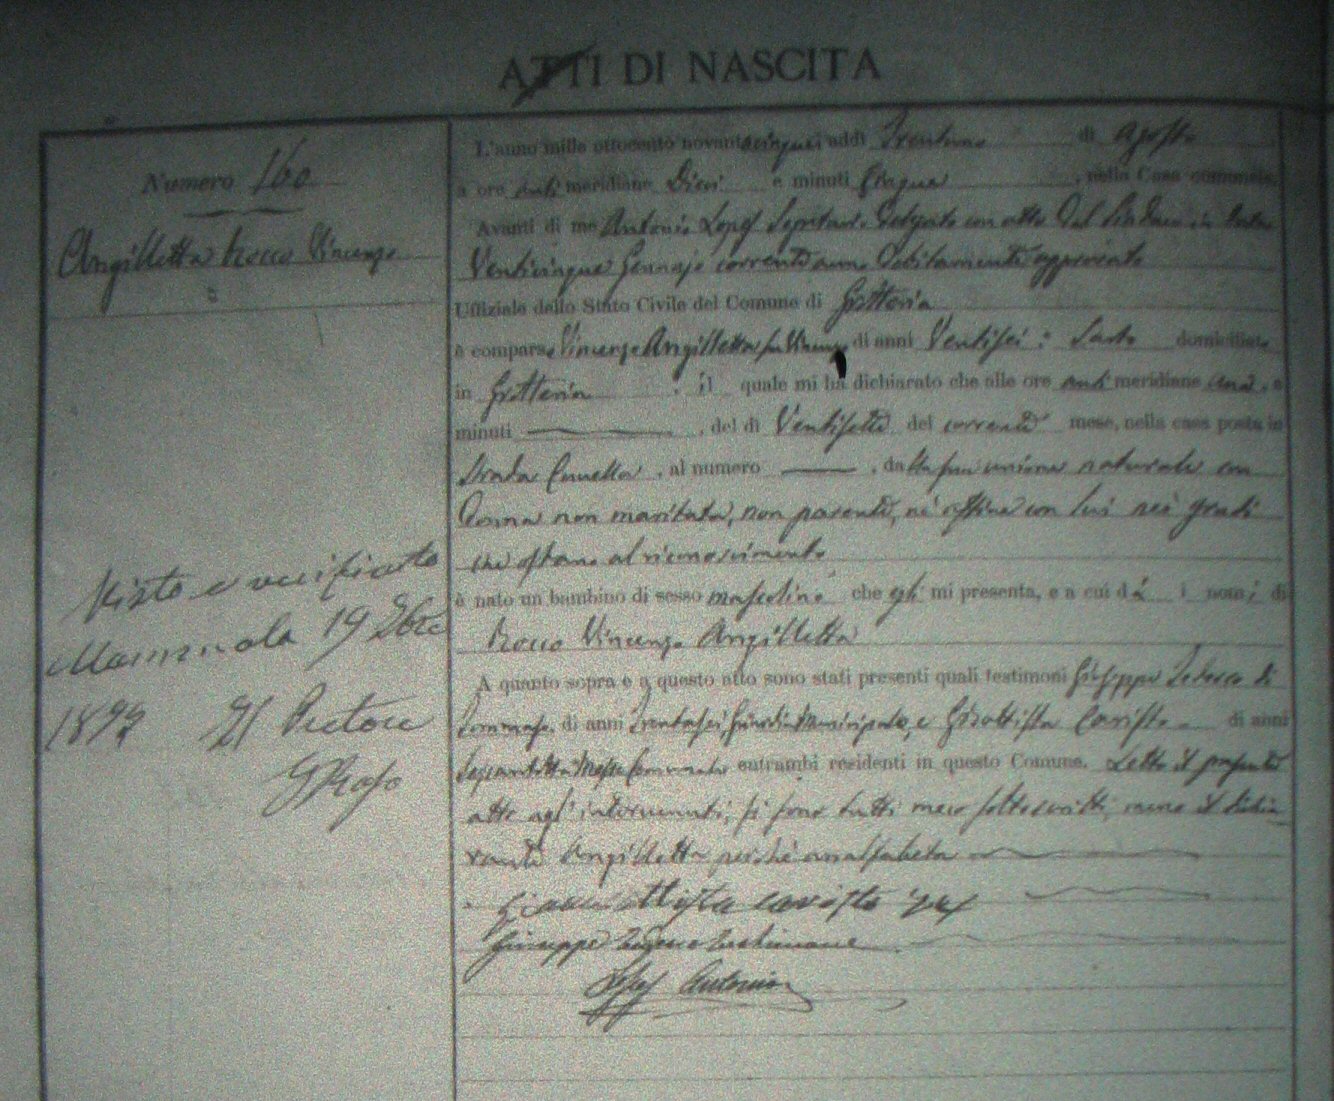 ATTI DI NASCITA
Numero 160.
Angilletta Rocco Vincenzo
Visto e verificato
Mammola 19 Xbre
189 Il Pretore
L'anno mille ottocento novantacinque addì Trentuno di Agosto
a ore anti meridiane Dieci e minuti Cinque, nella Casa comunale.
Avanti di me Antonio Lopez Segretario Delegato con atto del Sindaco in data
Venticinque Gennajo corrente anno debitamente approvato
Uffiziale dello Stato Civile del Comune di Grotteria
è comparso Vincenzo Angilletta fu Vincenzo di anni Ventisei: Sarto domiciliato
in Grotteria: il quale mi ha dichiarato che alle ore anti meridiane una, e
minuti , del dì Ventisette del corrente mese, nella casa posta in
Strada , al numero , dalla sua unione naturale con
donna non maritata, non parente, nè affine con lui nei gradi
che ostano al riconoscimento
è nato un bambino di sesso mascolino che egli mi presenta, e a cui dà i nomi di
Rocco Vincenzo Angilletta
A quanto sopra e a questo atto sono stati presenti quali testimoni Giuseppe Tedesco di
Tommaso, di anni Trentasei, Guardia Municipale, e Giobattista Carista di anni
Messo Comunale entrambi residenti in questo Comune. Letto il presente
atto agl'intervenuti, si sono tutti meco sottoscritti, meno il dichia-
rante Angilletta perchè analfabeta
Giambattista Carista
Giuseppe Tedesco testimone
Lopez Antonio